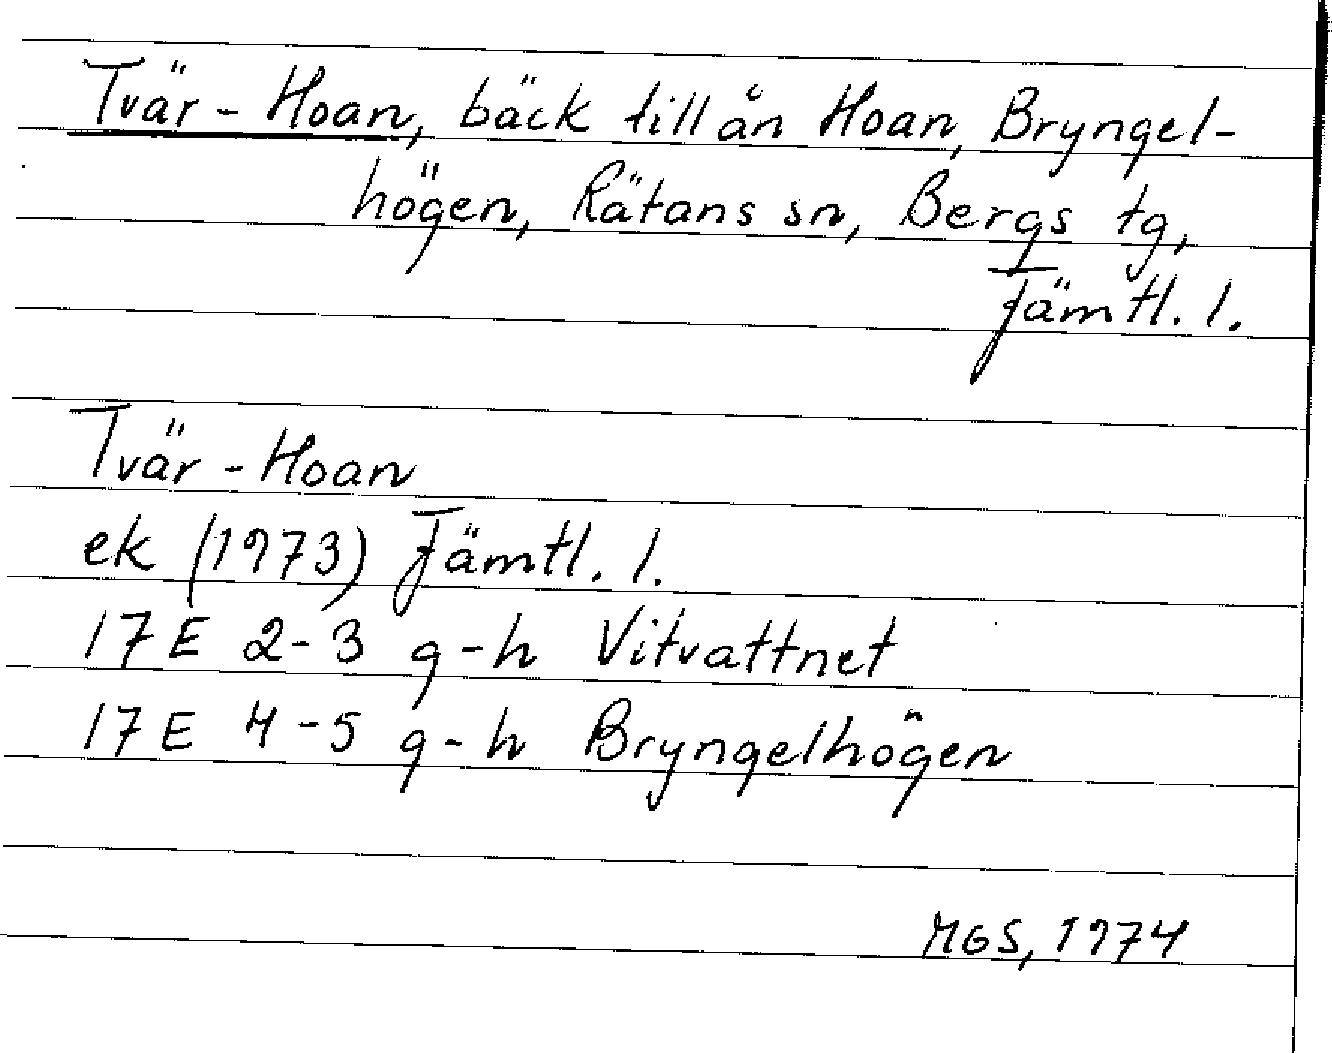 Tvär-Hoan, bäck till ån Hoan, Bryngel-
högen, Rätans sn, Bergs tg,
Jämtl. l.
Tvär-Hoan
ek (1973) Jämtl. l.
17E 2-3 g-h Vitvattnet
17E 4-5 g-h Bryngelhögen
MGS, 1974